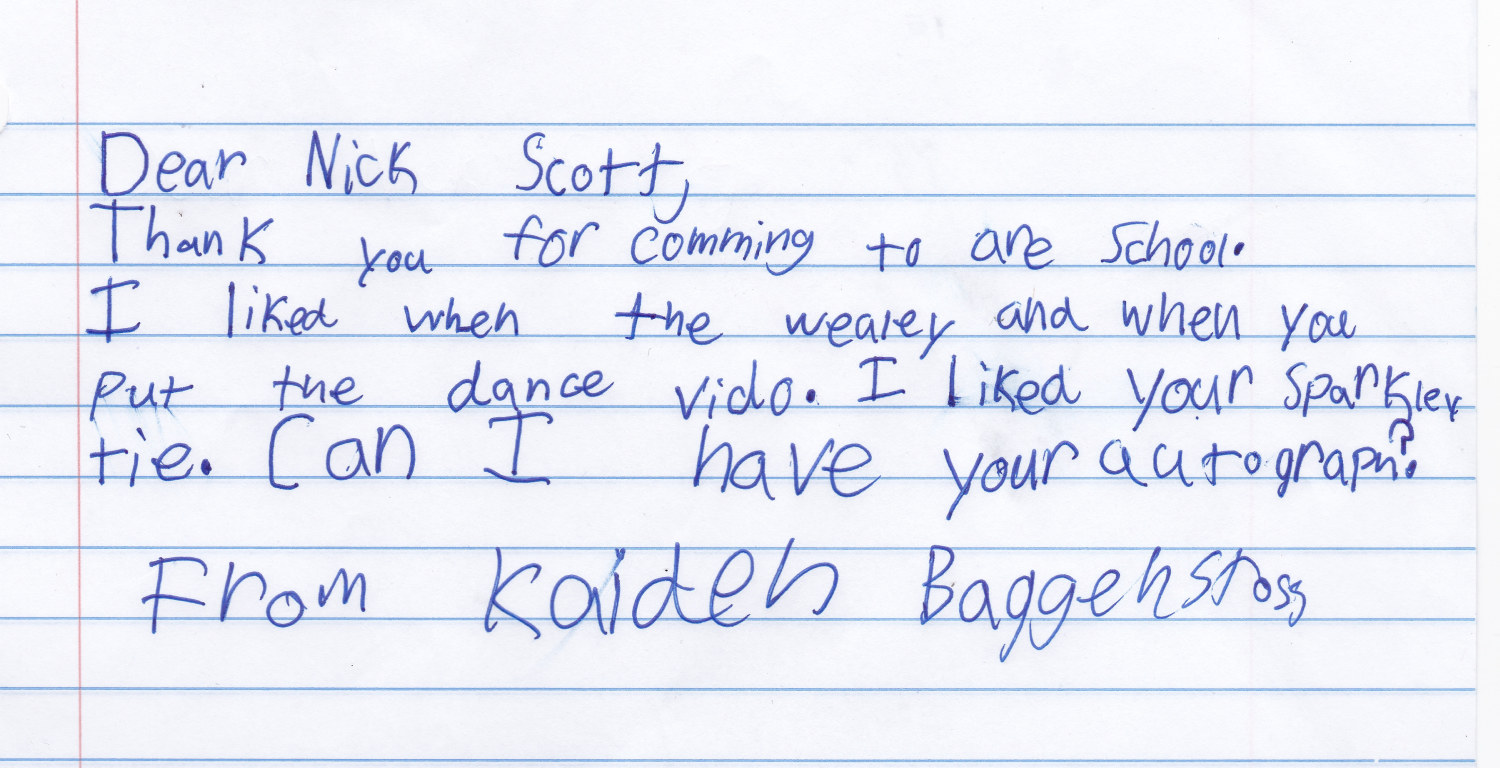 Dear Nick Scott,
Thank you for comming to are School.
I liked when the wearey and when you
put the dance vido. I liked your sparkley
tie. Can I have your autograph?
From Kaiden Baggenstoss